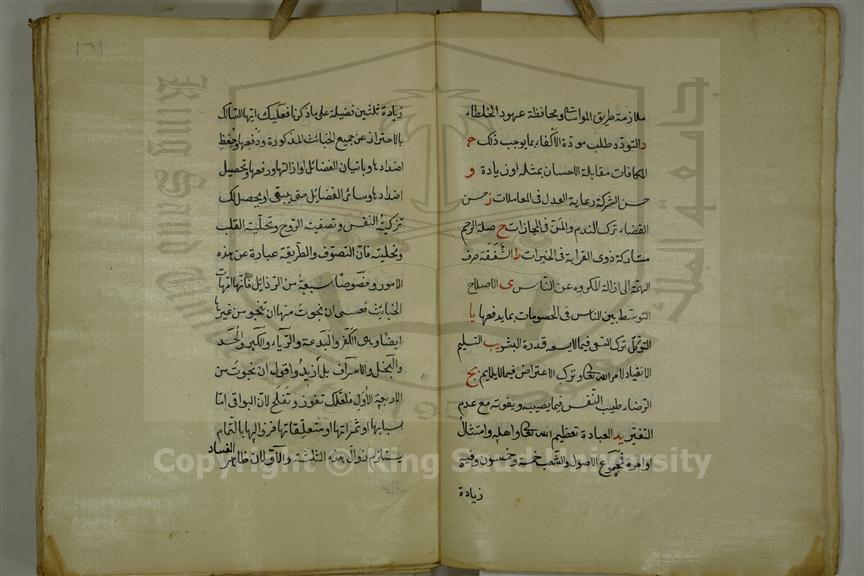 ملازمة طريق المواساة ومحافظة عهود الخلطاء
د التودد طلب مودة الأكفاء بما يوجب ذلك ح
المكافات مقابلة الاحسان بمثله او زيادة و
حسن الشركة رعاية العدل في المعاملات ز حسن
القضاء ترك الندم والمن في المجازات ح صلة الرحم
مشاركة ذوى القرابة في الخيرات ط الشفقة صرف
الهمة الى ازالة المكروه عن الناس ى الاصلاح
التوسط بين الناس في الخصومات بما يدفعها يا
التوكل ترك السعى فيما لا يسعه قدرة البشر يب التسليم
الانقياد لامر الله تعالى وترك الاعتراض فيما لا يلايم يج
الرضاء طيب النفس فيما يصيبه ويفوته مع عدم
التغير يد العبادة تعظيم الله تعالى واهله وامتثال
اوامره فمجموع الاصول والشعب خمسة وخمسون وفيه
زيادة
١٦١
زيادة ثلثين فضيلة على ما ذكرنا فعليك ايها السالك
بالاحتراز عن جميع الخبائث المذكورة ودفعها وحفظ
اضدادها وباتيان الفضائل او ازالتها ورفعها وتحصيل
اضدادها وسائر الفضائل حتى يبقى او يحصل لك
تزكية النفس وتصفية الروح وتخلية القلب
وتحليته فان التصوف والطريقة عبارة عن هذه
الامور وخصوصا سبعة من الرذائل فانها امهات
الخبائث فعسى ان نجوت منها ان تنجو من غيرها
ايضا وهى الكفر والبدعة والرياء والكبر والحسد
والبخل والاسراف بل ازيد واقول ان نجوت من
الاربعة الاول فلعلك تفوز وتفلح لان البواقى اما
اسبابها او ثمراتها او متعلقاتها فزوالها بالتمام
يستلزم زوال هذه الثلثة والآولان ظاهر الفساد
King Saud University
جامعة الملك
1957
Copyright © King Saud University